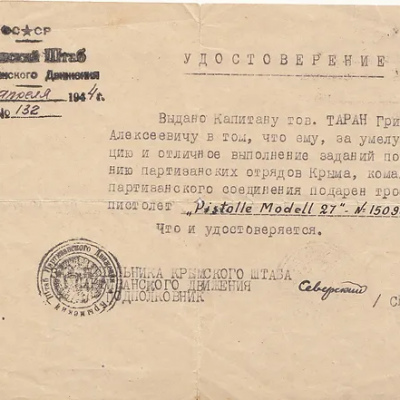 СССР
ский Штаб
нского Движения
апреля 1944 г.
№ 132
УДОСТОВЕРЕНИЕ
Выдано Капитану тов. ТАРАН Гри
Алексеевичу в том, что ему, за умелу
цию и отличное выполнение заданий по
нию партизанских отрядов Крыма, кома
партизанского соединения подарен тро
пистолет „Pistolle Modell 27" - № 1509
Что и удостоверяется.
ЛЬНИКА КРЫМСКОГО ШТАБА
АНСКОГО ДВИЖЕНИЯ
ОДПОЛКОВНИК
Северский
/С
Крымский Штаб Партизанского Движения